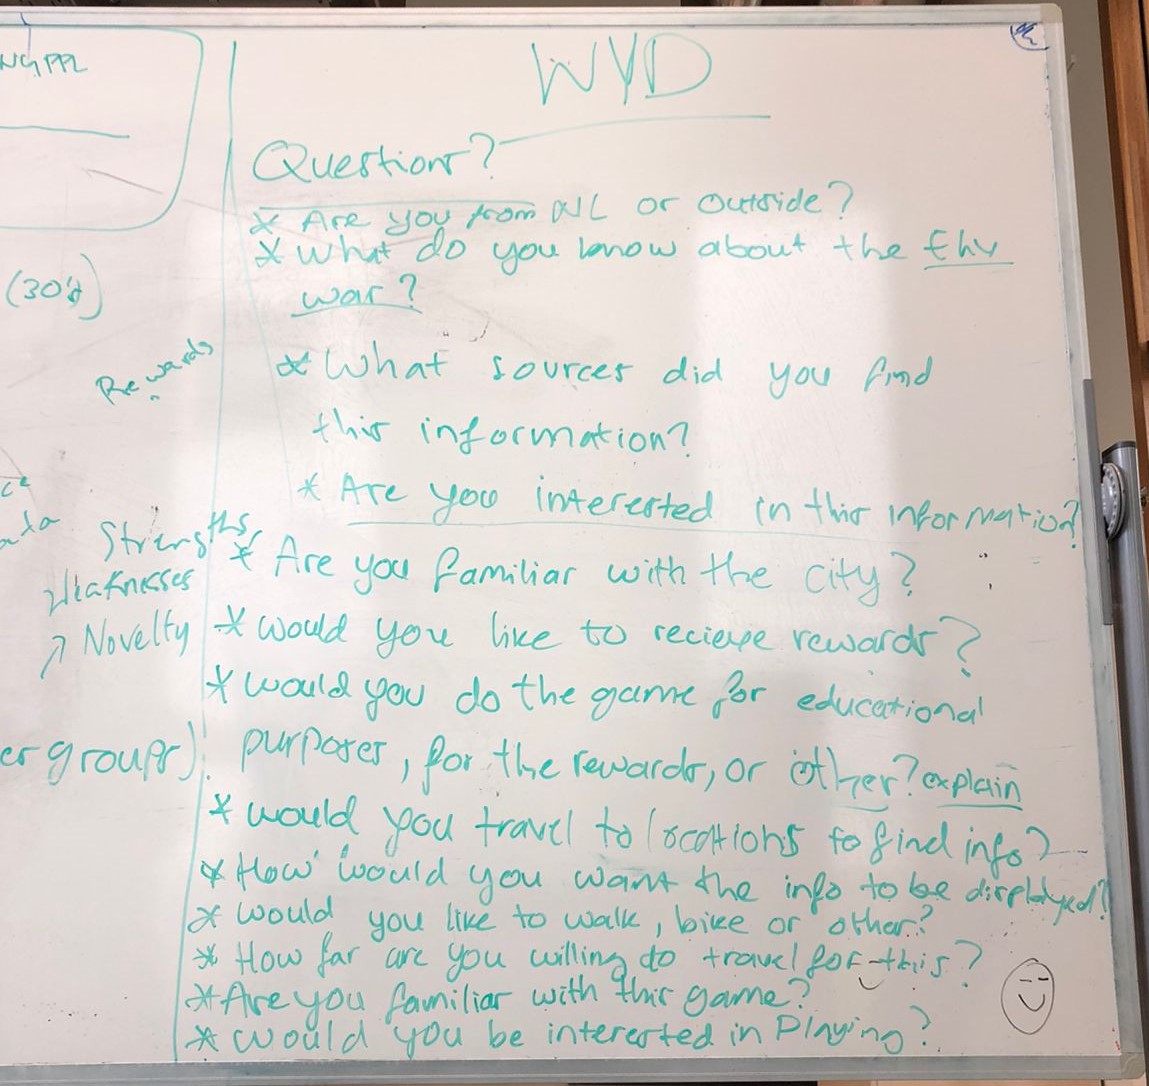 WYD
Questions?
* Are you from NL or outside?
* What do you know about the Ehv
war?
* What sources did you find
this information?
* Are you interested in this information?
* Are you familiar with the city?
* would you like to recieve rewards?
* would you do the game for educational
purposes, for the rewards, or other? explain
* would you travel to locations to find info?
* How would you want the info to be displayed?
* would you like to walk, bike or other?
* How far are you willing to travel for this?
* Are you familiar with this game?
* would you be interested in Playing?
(30's)
Rewards
Strengths
Weaknesses
Novelty
er groups)